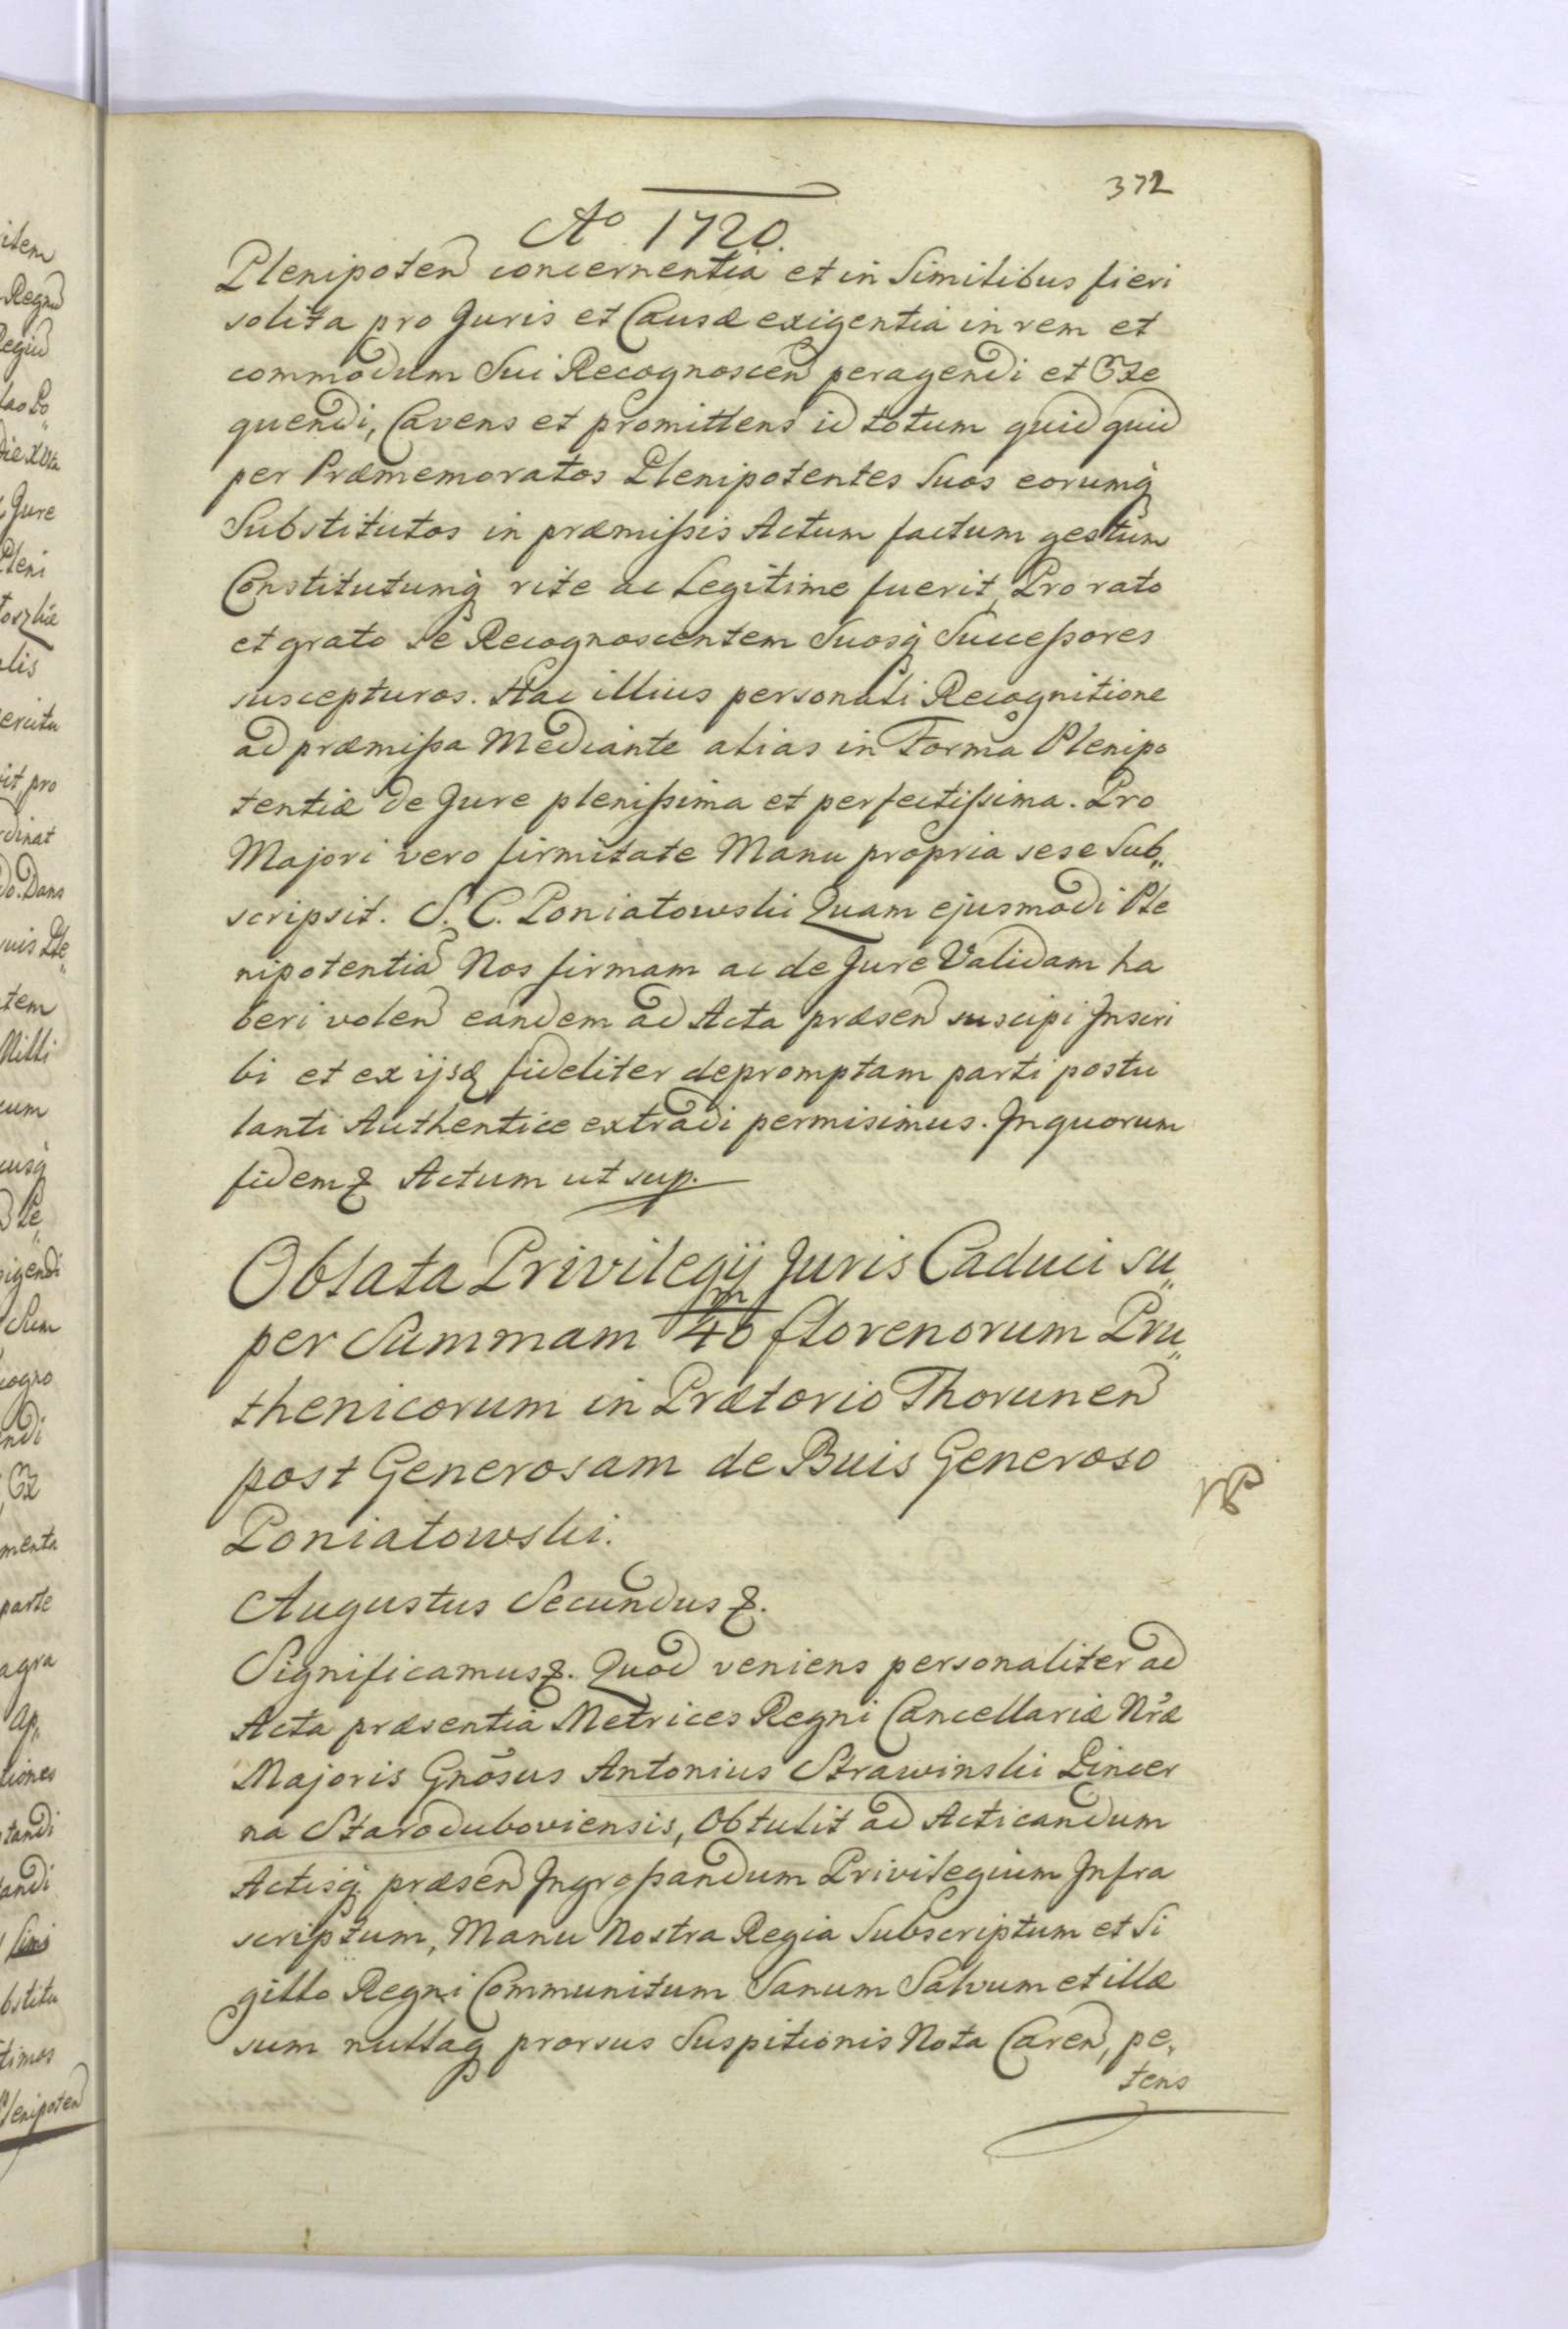 372
Ao 1720.
Plenipoten concernentia et in Similibus fieri
solita pro Juris et Causæ exigentia in rem et
commodum Sui Recognoscen peragendi et Exe
quendi, Cavens et promittens id totum quid quid
per Præmemoratos Plenipotentes Suos eorumq
Substitutos in præmissis Actum factum gestum
Constitutumq rite ac Legitime fuerit, Pro rato
et grato se Recognoscentem Suosq Successores
suscepturos. Hac illius personali Recognitione
ad præmissa Mediante alias in Forma Plenipo
tentiæ de Jure plenissima et perfectissima. Pro
Majori vero firmitate Manu propria sese Sub„
scripsit. S. C. Poniatowski Quam ejusmodi Ple
nipotentia Nos firmam ac de Jure Validam ha
beri volen eandem ad Acta præsen suscipi Inscri
bi et ex ijsq fideliter depromptam parti postu
lanti Authentice extradi permisimus. In quorum
fidem & Actum ut sup.
Oblata Privilegij Juris Caduci su„
per Summam 40 m florenorum Pru„
thenicorum in Prætorio Thorunen
post Generosam de Buis Generoso
Poniatowski.
Augustus Secundus &.
Significamus &. Quod veniens personaliter ad
Acta præsentia Metrices Regni Cancellariæ Nræ
Majoris Gnosus Antonius Strawinski Pincer
na Staroduboviensis, Obtulit ad Acticandum
Actisq præsen Ingrossandum Privilegium Infra
scriptum, Manu Nostra Regia Subscriptum et Si
gillo Regni Communitum Sanum Salvum et illæ
sum nullaq prorsus Suspitionis Nota Caren, pe„
tens